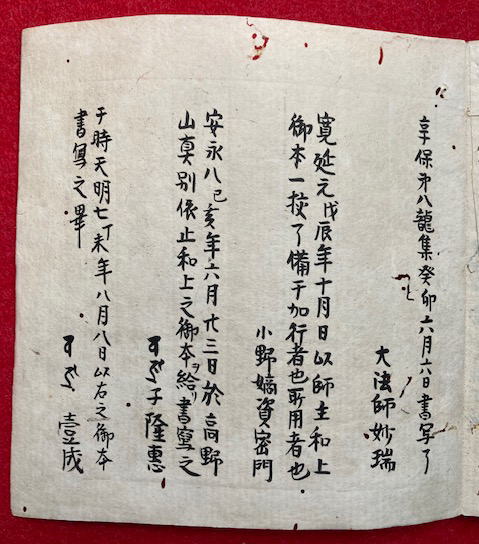 享保第八龍集癸卯六月六日書写了
大法師妙瑞
寛延元戊辰年十月日以師主和上
御本一挍了備于加行者也所用者也
小野嫡資密門
安永八己亥年六月廿三日於高野
山真別依止和上之御本ヲ給リ書写之
子隆恵
于時天明七丁未年八月八日以右之御本
書写之畢
壹成